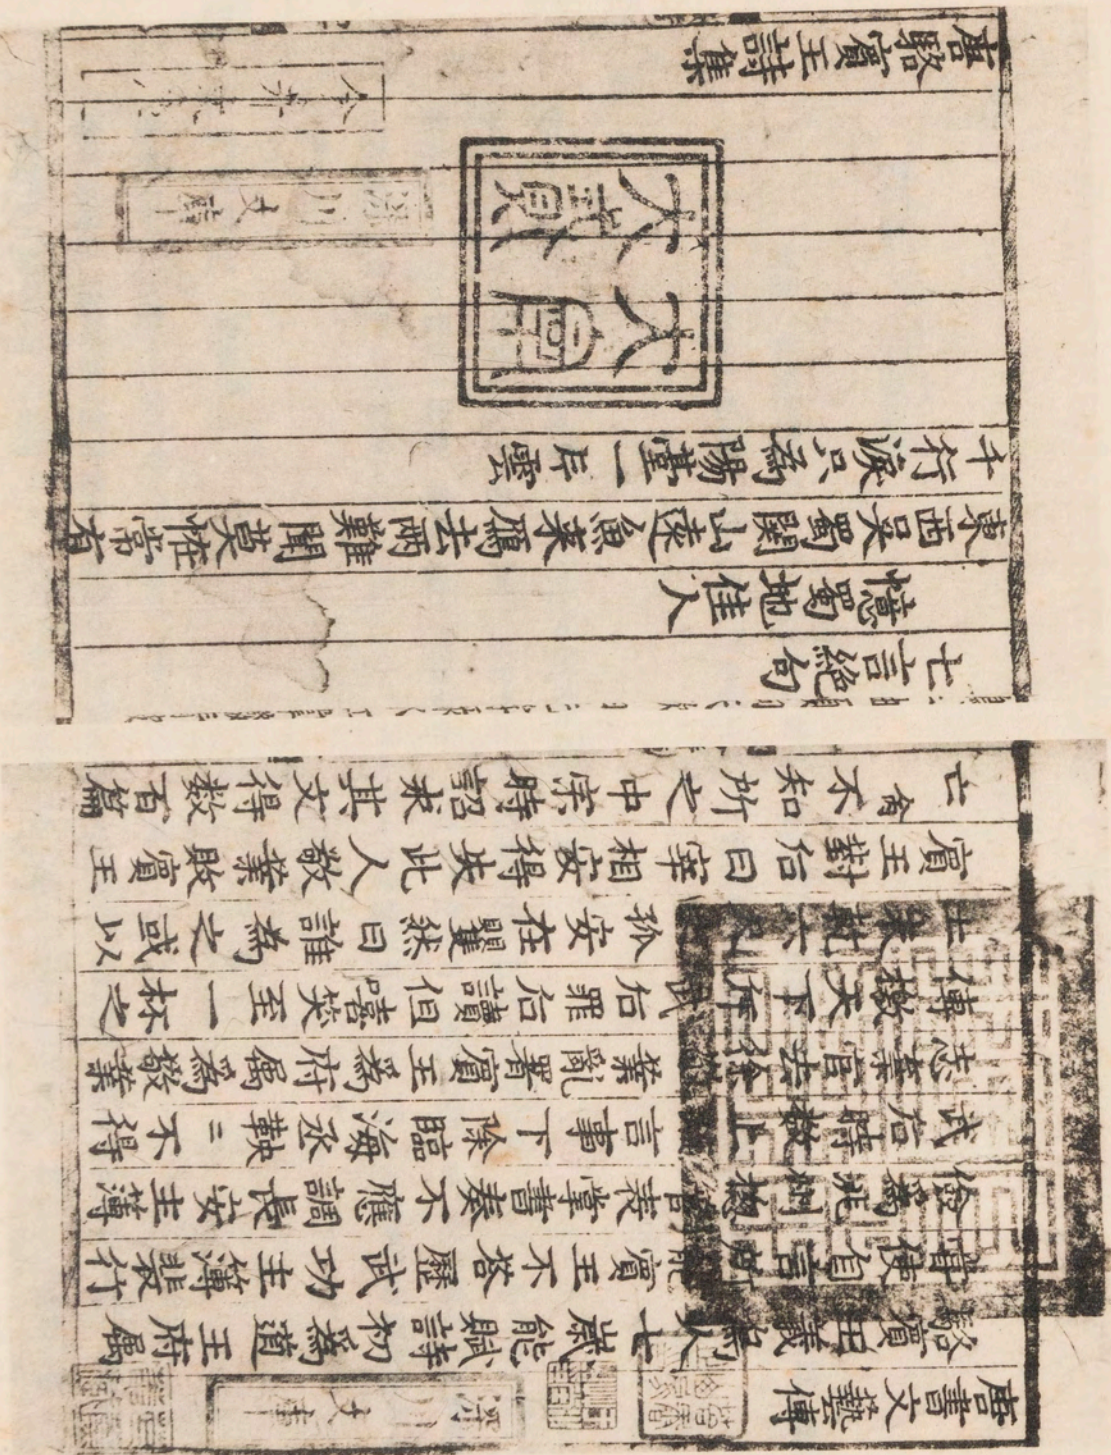 唐書文藝傳
駱賓王義烏人七歲能賦詩初爲道王府屬
嘗使自言所能賓王不答歷武功主簿裴行
儉爲洮州總管表掌書奏不應調長安主簿
武后時數上言事下除臨海丞鞅=不得
志棄官去徐敬業亂署賓王爲府屬爲敬業
傳檄天下斥武后罪后讀但嘻笑至一杯之
土未乾六尺孤安在矍然曰誰為之或以
賓王對后曰宰相安得失此人敬業敗賓王
亡命不知所之中宗時詔求其文得数百篇
七言絕句
憶蜀地佳人
東西吴蜀關山遠魚來鴈去兩難聞莫怪常有
千行淚只爲陽臺一片雲
唐駱賓王詩集